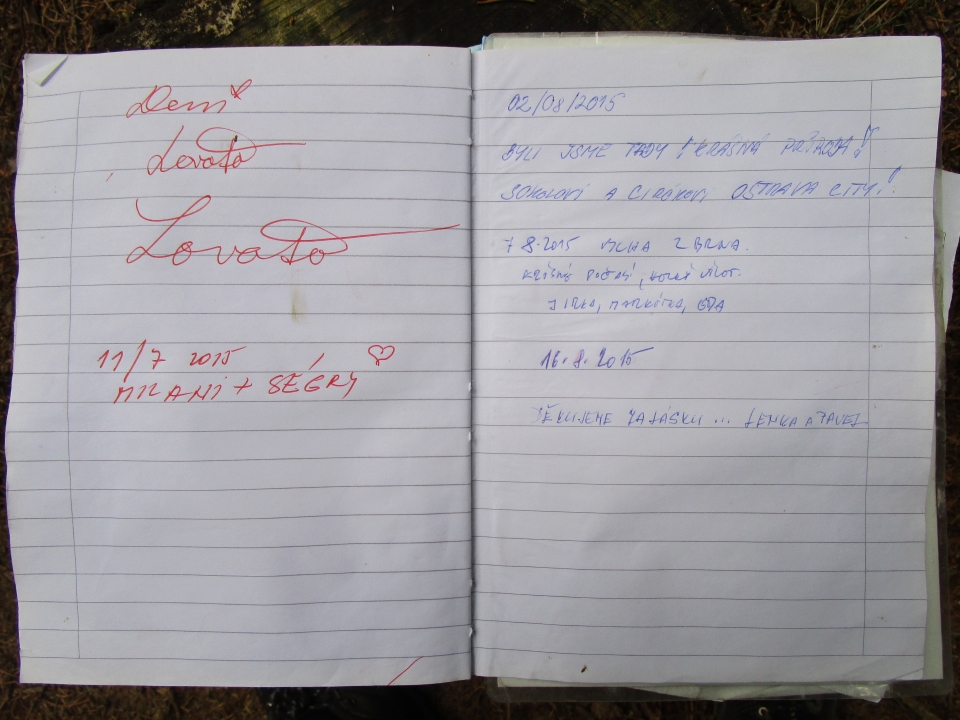 Demi
Lovato
Lovato
11/7 2015
MIRANI + SÉGRY
02/08/2015
BYLI JSME TADY! KRÁSNÁ PŘÍRODA!
SOKOLOVI A OSTRAVA CITY!
7 8.2015 Z BRNA.
KRÁSNÉ POČASÍ,
JIRKA, MARKÉTKA,
16.8.2015
DĚKUJEME ZA LÁSKU ... LENKA A PAVEL